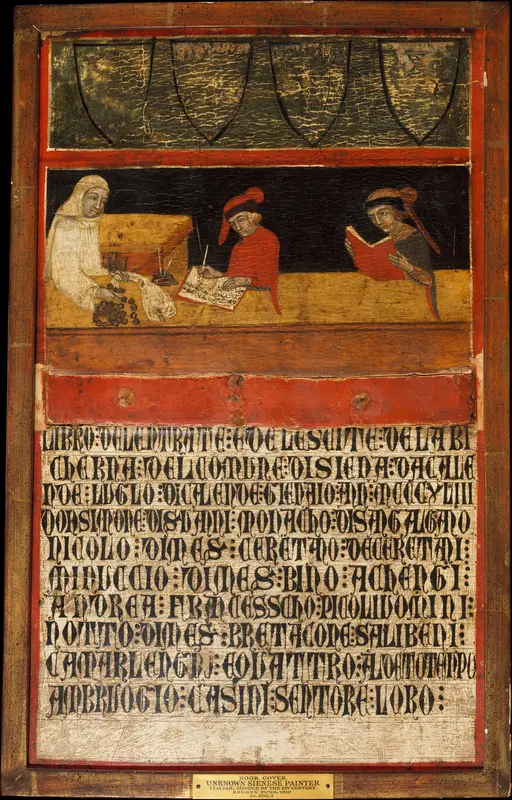 LIBRO : DELENTRATE : E DE LESCITE : DE LA BI
CHERNA : DEL COMUNE : DI SIENA : DA CALE
NDE : LUGLO : DI CALENDE GIENAIO ANN : MCCCXLIII
DON SIMONE : DI S : VANI : MONACHO : DI SANGALGANO
NICOLO : DI MES : CERETANO : DE CERETANI :
MINUCCIO : DI MES : BINO : ACHENGI :
ANDREA : FRANCESSCHO : PICOLUOMINI :
NOTTO : DI MES : BRETACONE : SALIBENI :
CAMARLENGHO : E QUATTRO : AL DETO TENPO
AMBRUOGIO : CASINI : SCNTORE : LORO :
BOOK COVER
UNKNOWN SIENESE PAINTER
ITALIAN, MIDDLE OF THE XIV CENTURY
ROGERS FUND, 1910